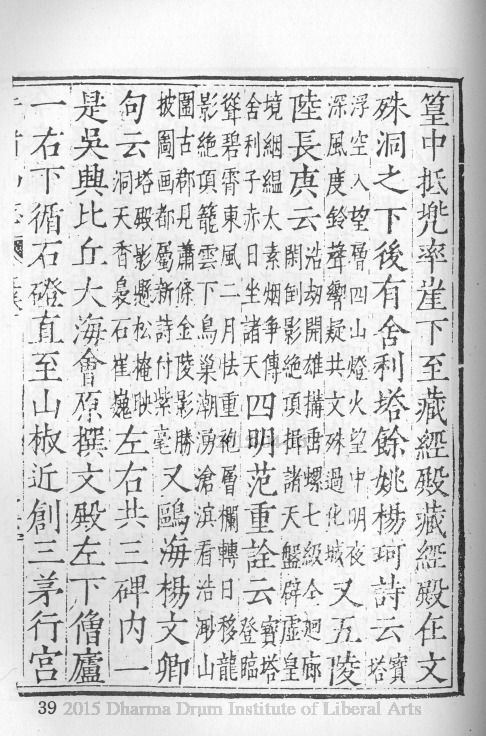 篁中抵兠率崖下至藏經殿藏經殿在文
殊洞之下後有舍利塔餘姚楊珂詩云寶塔
浮空入望層四山燈火望中明夜
深風度鈴聲響疑共文殊過化城又五陵
陸長庚云浩劫開雄搆螺七級仝廻廊
閑倒影絶頂揖諸天盤辟虛皇
境絪緼太素烟爭傳
舍利子赤日坐諸天四明范重詮云寶塔登臨
聳碧霄東風二月怯重袍層欄轉日移龍
影絶頂籠雲下鳥巢潮湧滄溟看浩渺山
圖古郡丹蕭條金陵影勝
披圖画都屬新詩付紫毫又鷗海楊文卿
句云塔殿影懸松掩映
洞天香裊石崔巍左右共三碑內一
是吳興比丘大海會原撰文殿左下僧廬
一右下循石磴直至山椒近創三茅行宮
39 2015 Dharma Drum Institute of Liberal Arts